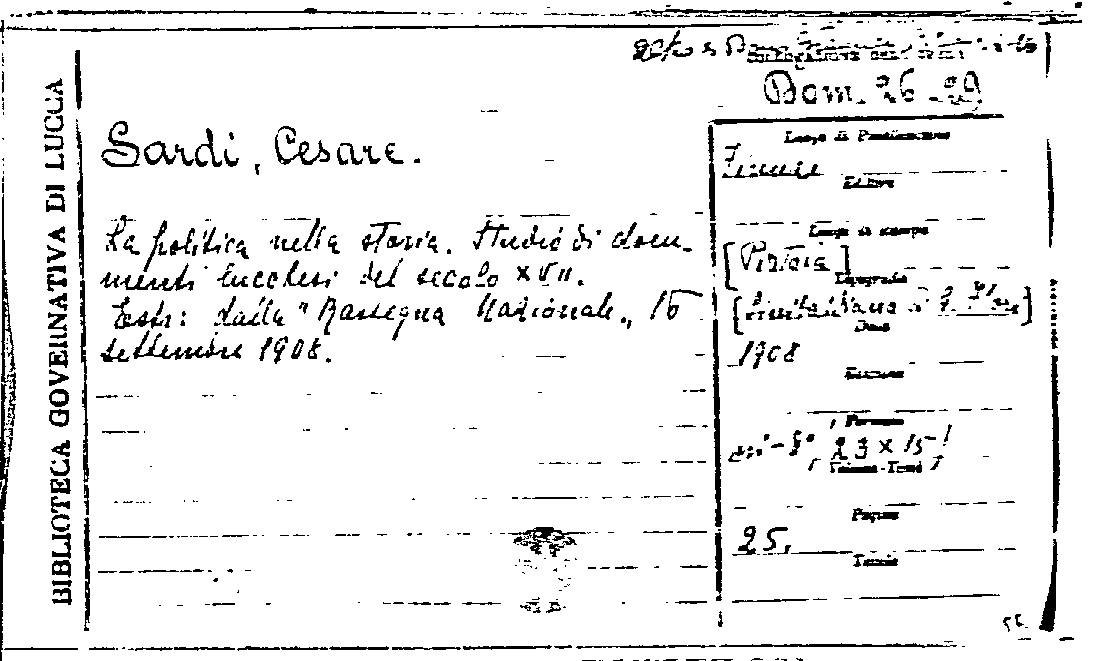 BIBLIOTECA GOVERNATIVA DI LUCCA
Dom. 26-29
Sardi, Cesare.
La politica nella storia. Studio di docu-
menti lucchesi del secolo XVII.
Estr: dalla "Rassegna Nazionale„ 16
settembre 1908.
Luogo di Pubblicazione
Firenze
Editore
Luogo di stampa
[Pistoia]
Tipografo
Data
1908
Edizione
Formato
in-8°, 23 x 15
Volume-Tomo
Pagine
25.
Tavole